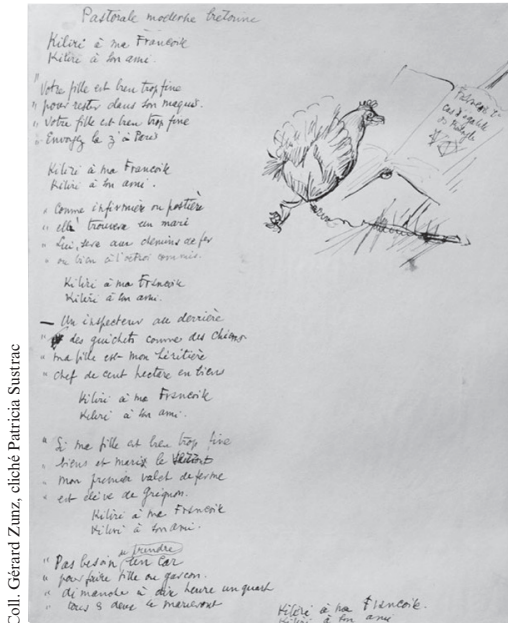 Pastorale moderne bretonne
Kiliri à ma Francoik
Kiliri à son ami.
" Votre fille est bien trop fine
" pour rester dans son
" Votre fille est bien trop fine
" Envoyez la z'à
Kiliri à ma Francoik
Kiliri à son ami.
" Comme infirmière ou postière
" elle trouvera un mari
" Lui, sera aux chemins de fer
" ou bien à l'octroi commis.
Kiliri à ma Francoik
Kiliri à son ami.
— Un inspecteur au derrière
" des guichets comme des chiens
" ma fille est mon héritière
" chef de cent hectare en biens
Kiliri à ma Francoik
Kiliri à son ami.
" Si ma fille est bien trop fine
" biens et maris le
" mon premier valet de ferme
" est élève de Grignon.
Kiliri à ma Francoik
Kiliri à son ami.
prendre
" Pas besoin un car
" pour faire fille ou garcon.
" dimanche à dix heure un quart
" tous 8 deux le marieront
Kiliri à ma Francoik.
Kiliri à son ami
Coll. Gérard Zunz, cliché Patricia Sustrac